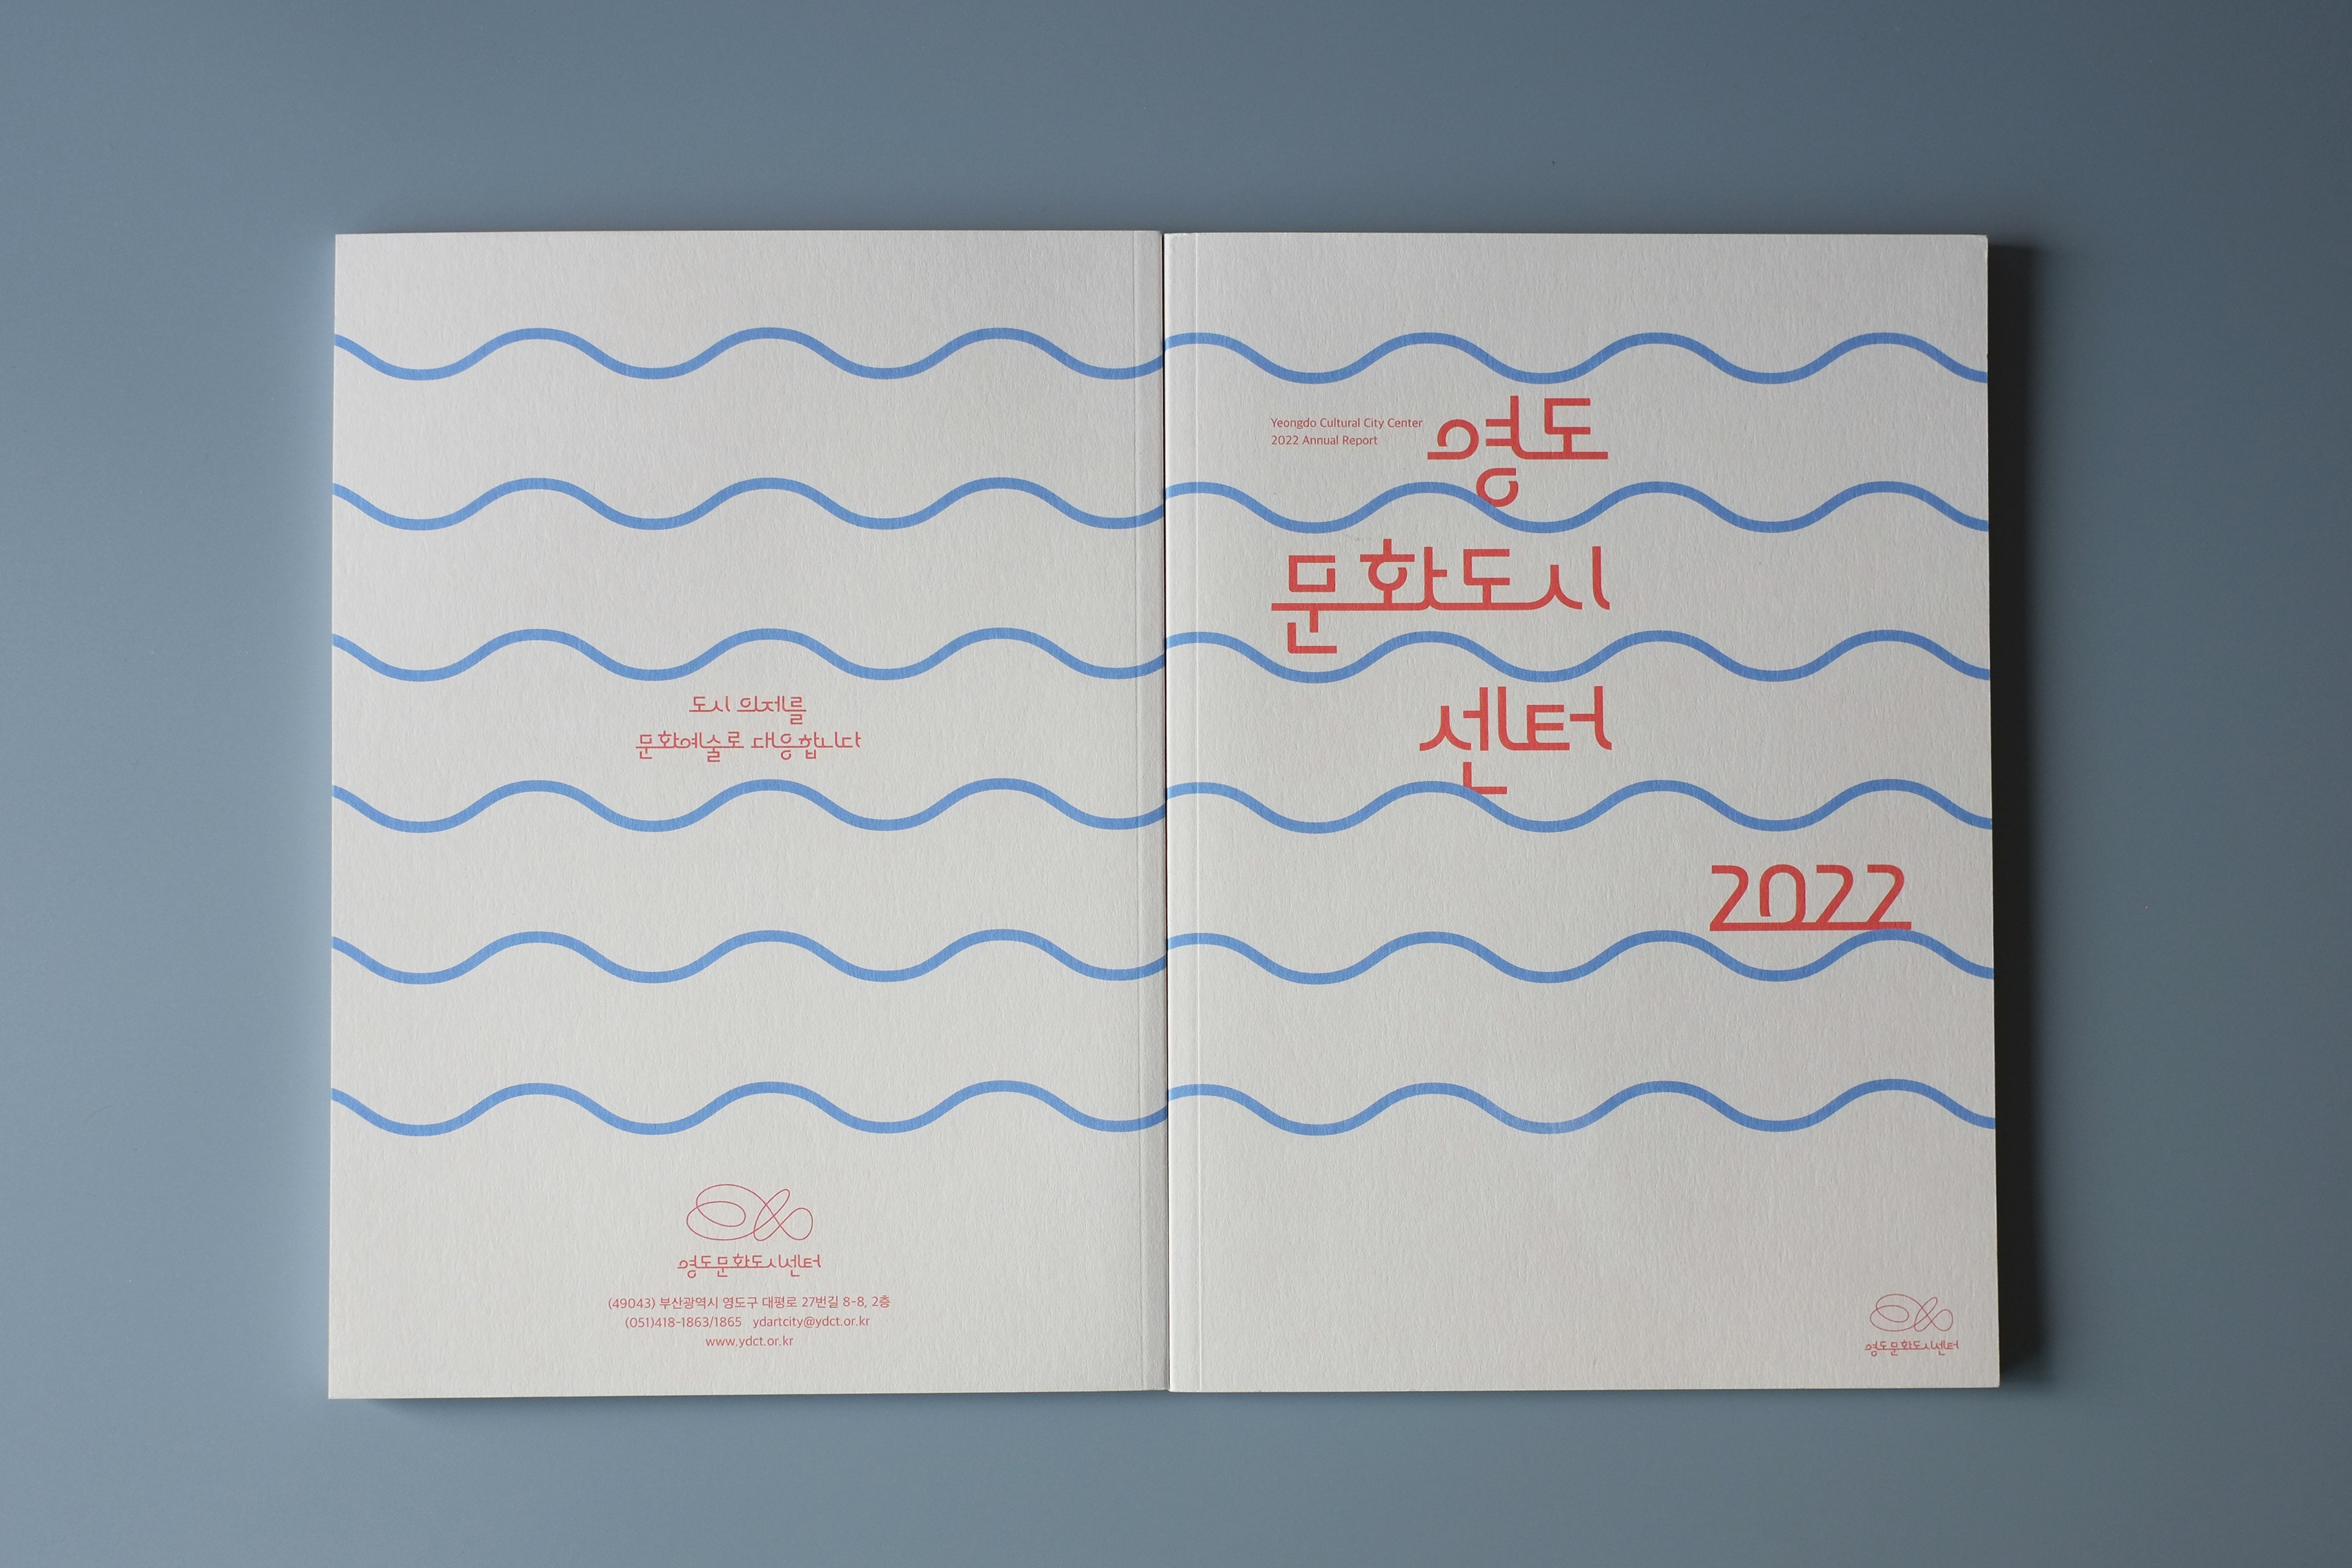 도시 의제를
문화예술로 대응합니다
영도문화도시센터
(49043) 부산광역시 영도구 대평로 27번길 8-8, 2층
(051)418-1863/1865 ydartcity@ydct.or.kr
www.ydct.or.kr
Yeongdo Cultural City Center
2022 Annual Report
영도
문화도시
센터
2022
영도문화도시센터